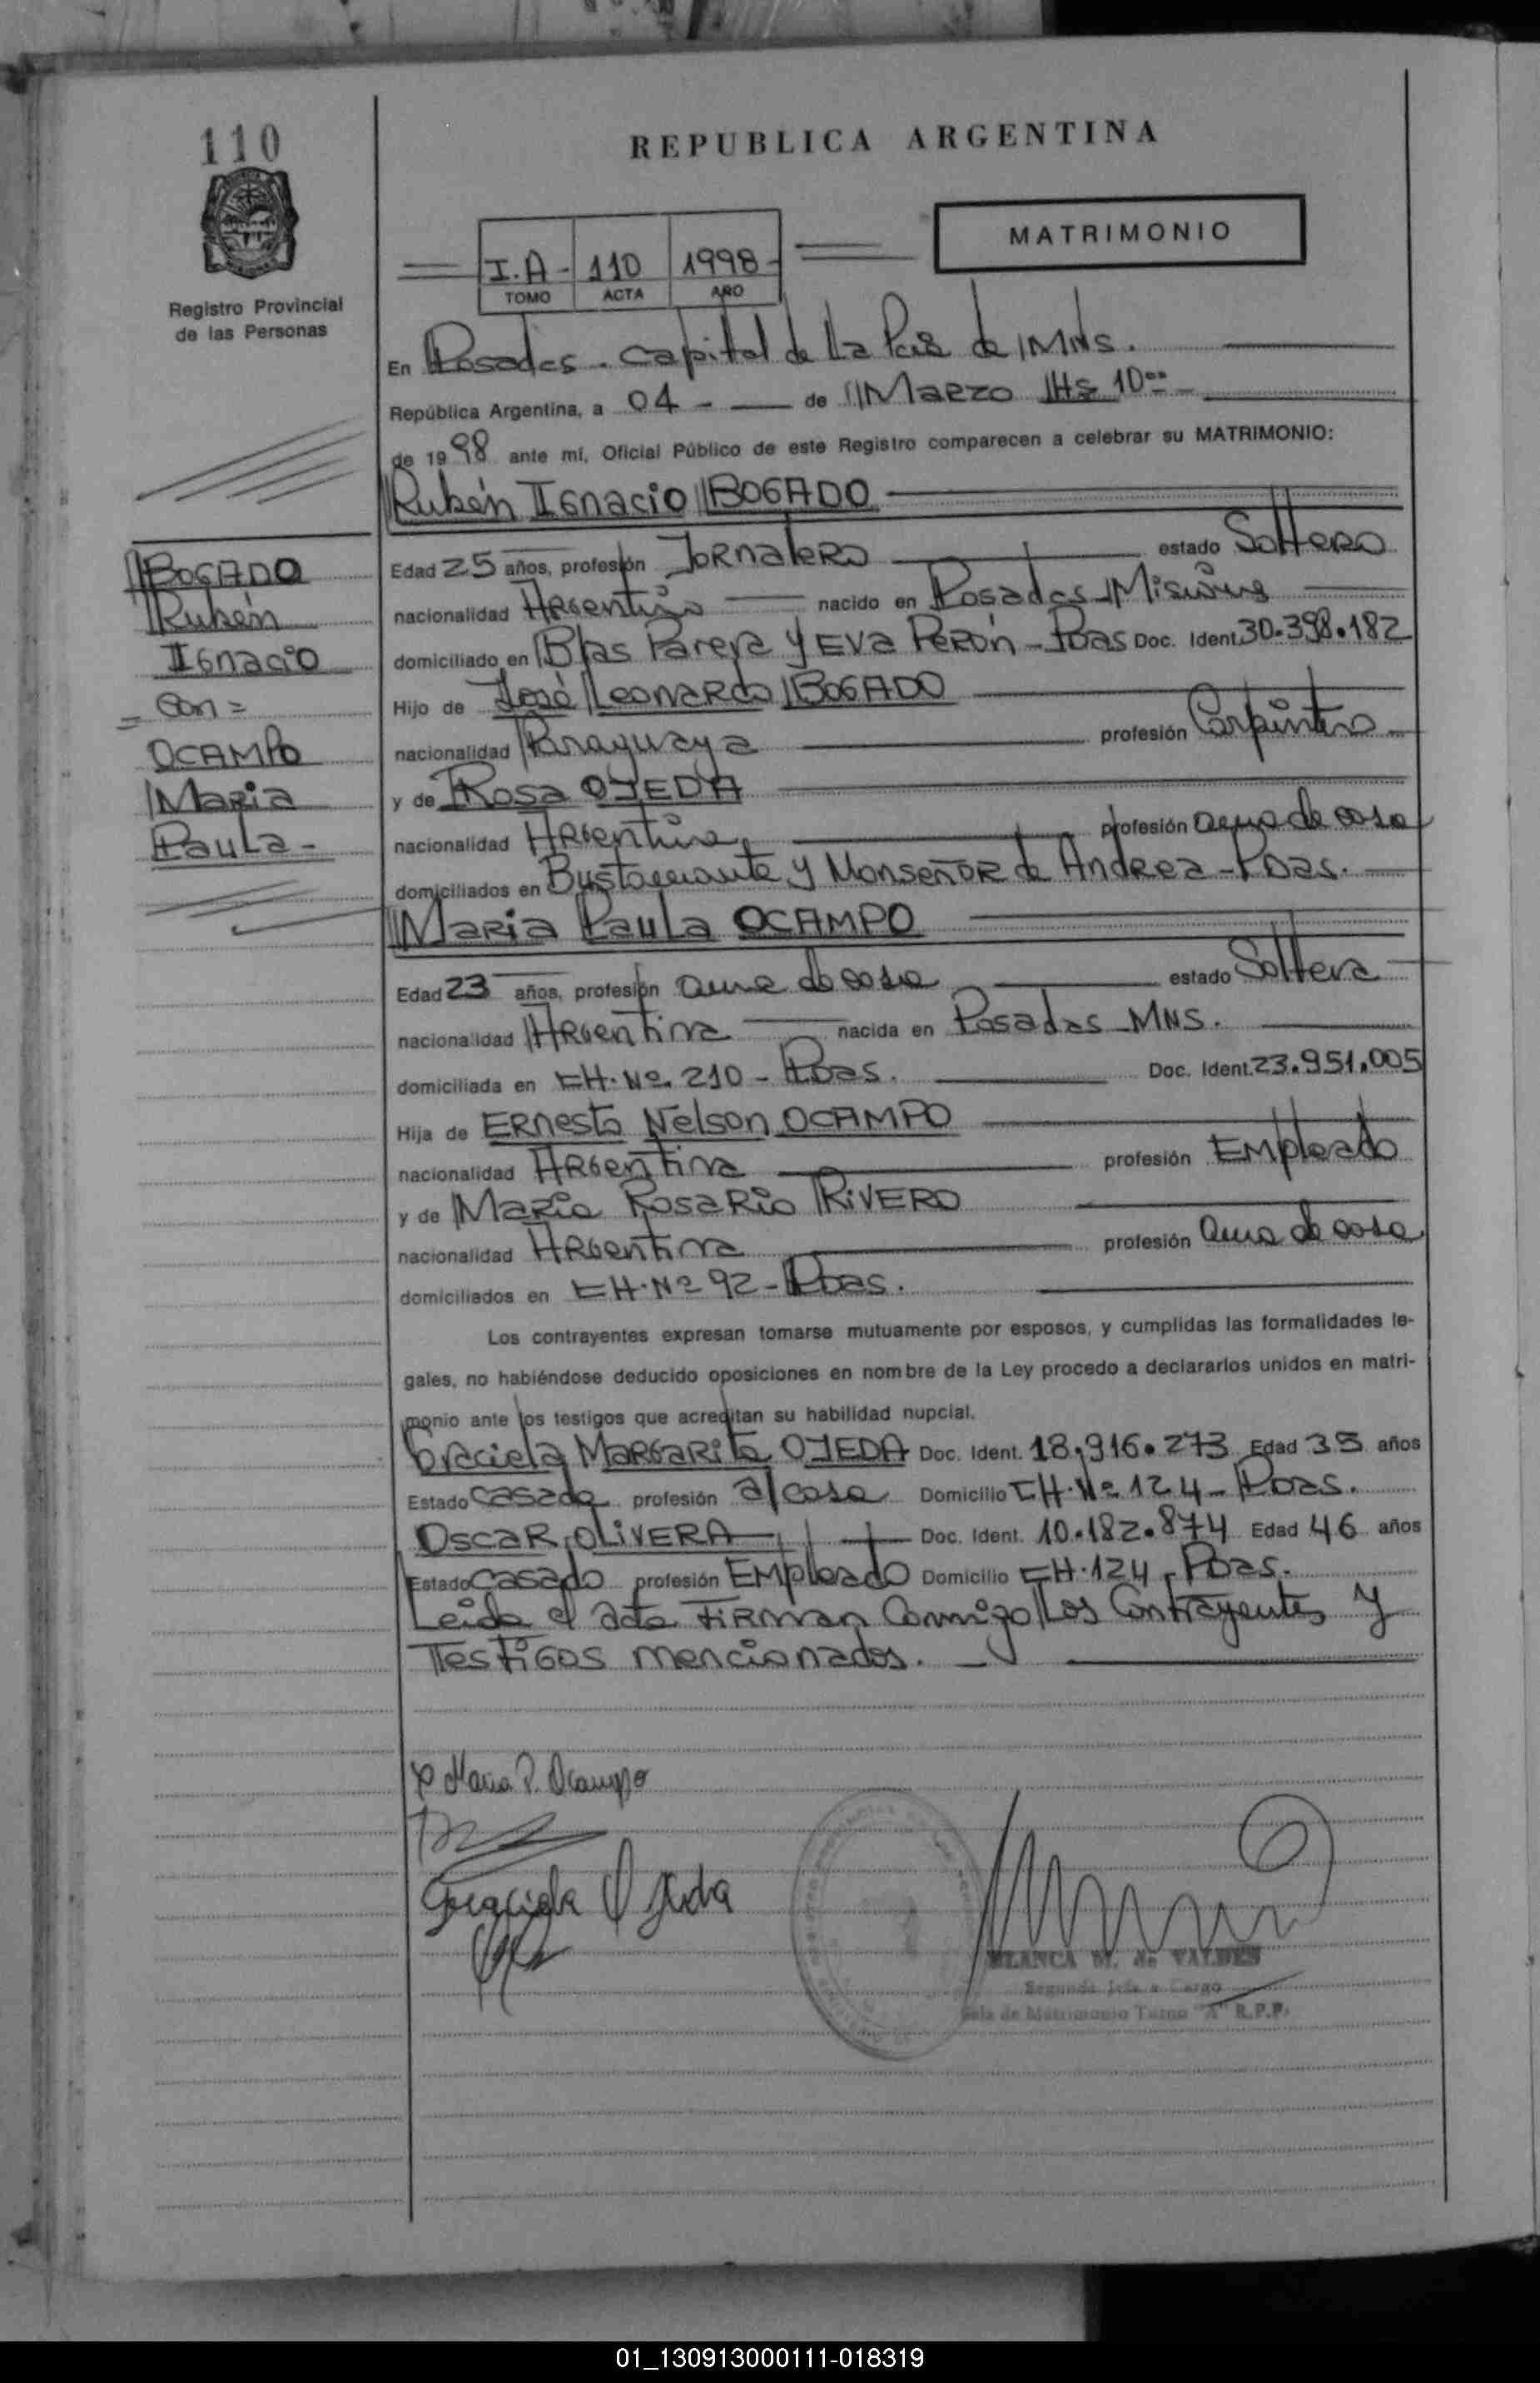 110
REPUBLICA ARGENTINA
MATRIMONIO
I.A- 110 1998-
TOMO ACTA AÑO
Registro Provincial
de las Personas
En Posadas - Capital de la Pcia de MNS.
República Argentina, a 04 - de Marzo Hs 10ºº -
de 1998 ante mí, Oficial Público de este Registro comparecen a celebrar su MATRIMONIO:
Rubén Ignacio BOGADO
BOGADO
Rubén
Ignacio
= Con =
OCAMPO
Maria
Paula -
Edad 25 años, profesión Jornalero estado Soltero
nacionalidad Argentino nacido en Posadas - Misiones
domiciliado en Blas Pareja y Eva Perón - Pdas Doc. Ident. 30.398.182
Hijo de José Leonardo BOGADO
nacionalidad Paraguaya profesión Carpintero
y de Rosa OJEDA
nacionalidad Argentina profesión ama de casa
domiciliados en Bustamante y Monseñor de Andrea - Pdas.
Maria Paula OCAMPO
Edad 23 años, profesión ama de casa estado Soltera
nacionalidad Argentina nacida en Posadas MNS.
domiciliada en CH. Nº. 210 - Pdas. Doc. Ident. 23.951.005
Hija de Ernesto Nelson OCAMPO
nacionalidad Argentina profesión Empleado
y de Maria Rosario RIVERO
nacionalidad Argentina profesión ama de casa
domiciliados en CH. Nº 92 - Pdas.
Los contrayentes expresan tomarse mutuamente por esposos, y cumplidas las formalidades le-
gales, no habiéndose deducido oposiciones en nombre de la Ley procedo a declararlos unidos en matri-
monio ante los testigos que acreditan su habilidad nupcial.
Graciela Margarita OJEDA Doc. Ident. 18.916.273 Edad 35 años
Estado casada profesión a/casa Domicilio CH. Nº 124 - Pdas.
Oscar OLIVERA Doc. Ident. 10.182.874 Edad 46 años
Estado casado profesión Empleado Domicilio CH. 124 - Pdas.
Leida el acta firman conmigo los contrayentes y
Testigos mencionados.
Maria P. Ocampo
Graciela Ojeda
BLANCA M. de VALDES
Segunda Jefa a Cargo
Sala de Matrimonio Turno "A" R.P.P.
01_130913000111-018319